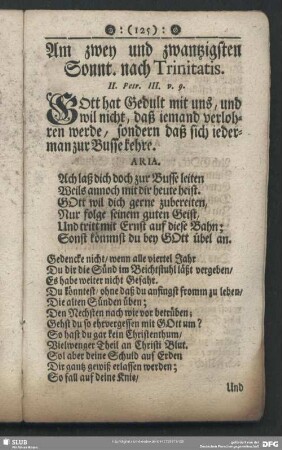 :(125):
Am zwey und zwantzigsten
Sonnt. nach Trinitatis.
II. Petr. III. v. 9.
GOtt hat Gedult mit uns, und
wil nicht, daß iemand verloh-
ren werde, sondern daß sich ieder-
man zur Busse kehre.
ARIA.
Ach laß dich doch zur Busse leiten
Weils annoch mit dir heute heist.
GOtt wil dich gerne zubereiten,
Nur folge seinem guten Geist,
Und tritt mit Ernst auf diese Bahn;
Sonst kömmst du bey GOtt übel an.
Gedencke nicht/ wenn alle viertel Jahr
Du dir die Sünd im Beichstuhl läßt vergeben/
Es habe weiter nicht Gefahr.
Du köntest/ ohne daß du anfingst fromm zu leben/
Die alten Sünden üben;
Den Nechsten nach wie vor betrüben;
Gehst du so ehrvergessen mit GOtt um?
So hast du gar kein Christenthum/
Vielwenger Theil an Christi Blut.
Sol aber deine Schuld auf Erden
Dir gantz gewiß erlassen werden;
So fall auf deine Knie/
Und
SLUB
DFG